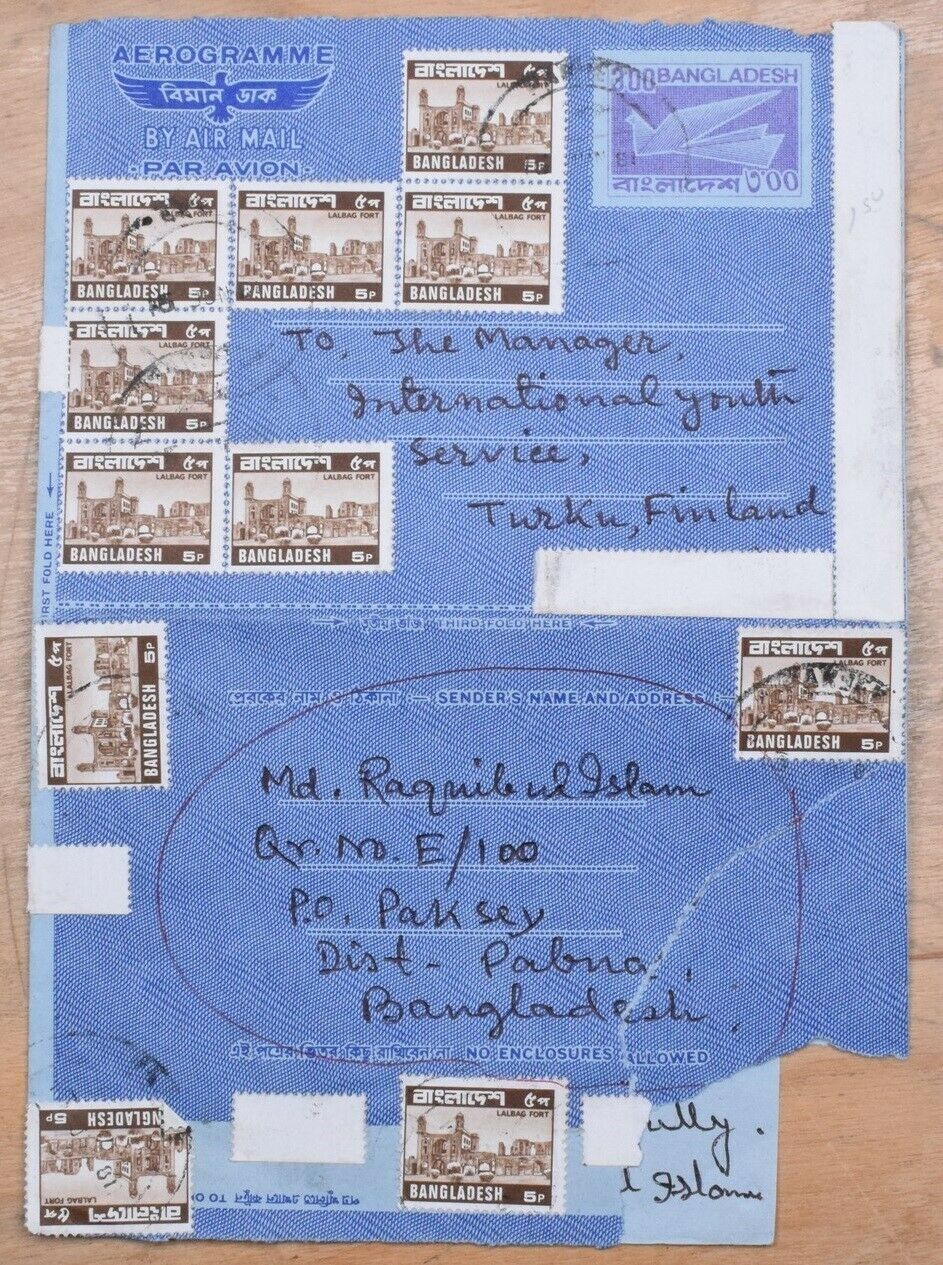 AEROGRAMME
বিমান ডাক
BY AIR MAIL
·PAR AVION·
বাংলাদেশ
LALBAG FORT
BANGLADESH 5P
3.00 BANGLADESH
বাংলাদেশ ৩·০০
বাংলাদেশ ৫প
LALBAG FORT
BANGLADESH 5P
বাংলাদেশ ৫প
LALBAG FORT
BANGLADESH 5P
বাংলাদেশ ৫প
LALBAG FORT
BANGLADESH 5P
বাংলাদেশ ৫প
LALBAG FORT
BANGLADESH 5P
বাংলাদেশ ৫প
LALBAG FORT
BANGLADESH 5P
বাংলাদেশ ৫প
LALBAG FORT
BANGLADESH 5P
To, The Manager,
International youth
Service,
Turku, Finland
IRST FOLD HERE
তৃতীয় ভাঁজ THIRD FOLD HERE
বাংলাদেশ ৫প
LALBAG FORT
BANGLADESH 5P
বাংলাদেশ ৫প
LALBAG FORT
BANGLADESH 5P
প্রেরকের নাম ও ঠিকানা — SENDER'S NAME AND ADDRESS
Md. Raquibul Islam
Qr. No. E/100
P.O. Paksey
Dist - Pabna,
Bangladesh.
এই পত্রের ভিতর কিছু রাখিবেন না NO ENCLOSURES ALLOWED
বাংলাদেশ ৫প
LALBAG FORT
NGLADESH 5P
বাংলাদেশ ৫প
LALBAG FORT
BANGLADESH 5P
ully.
l Islam
TO O